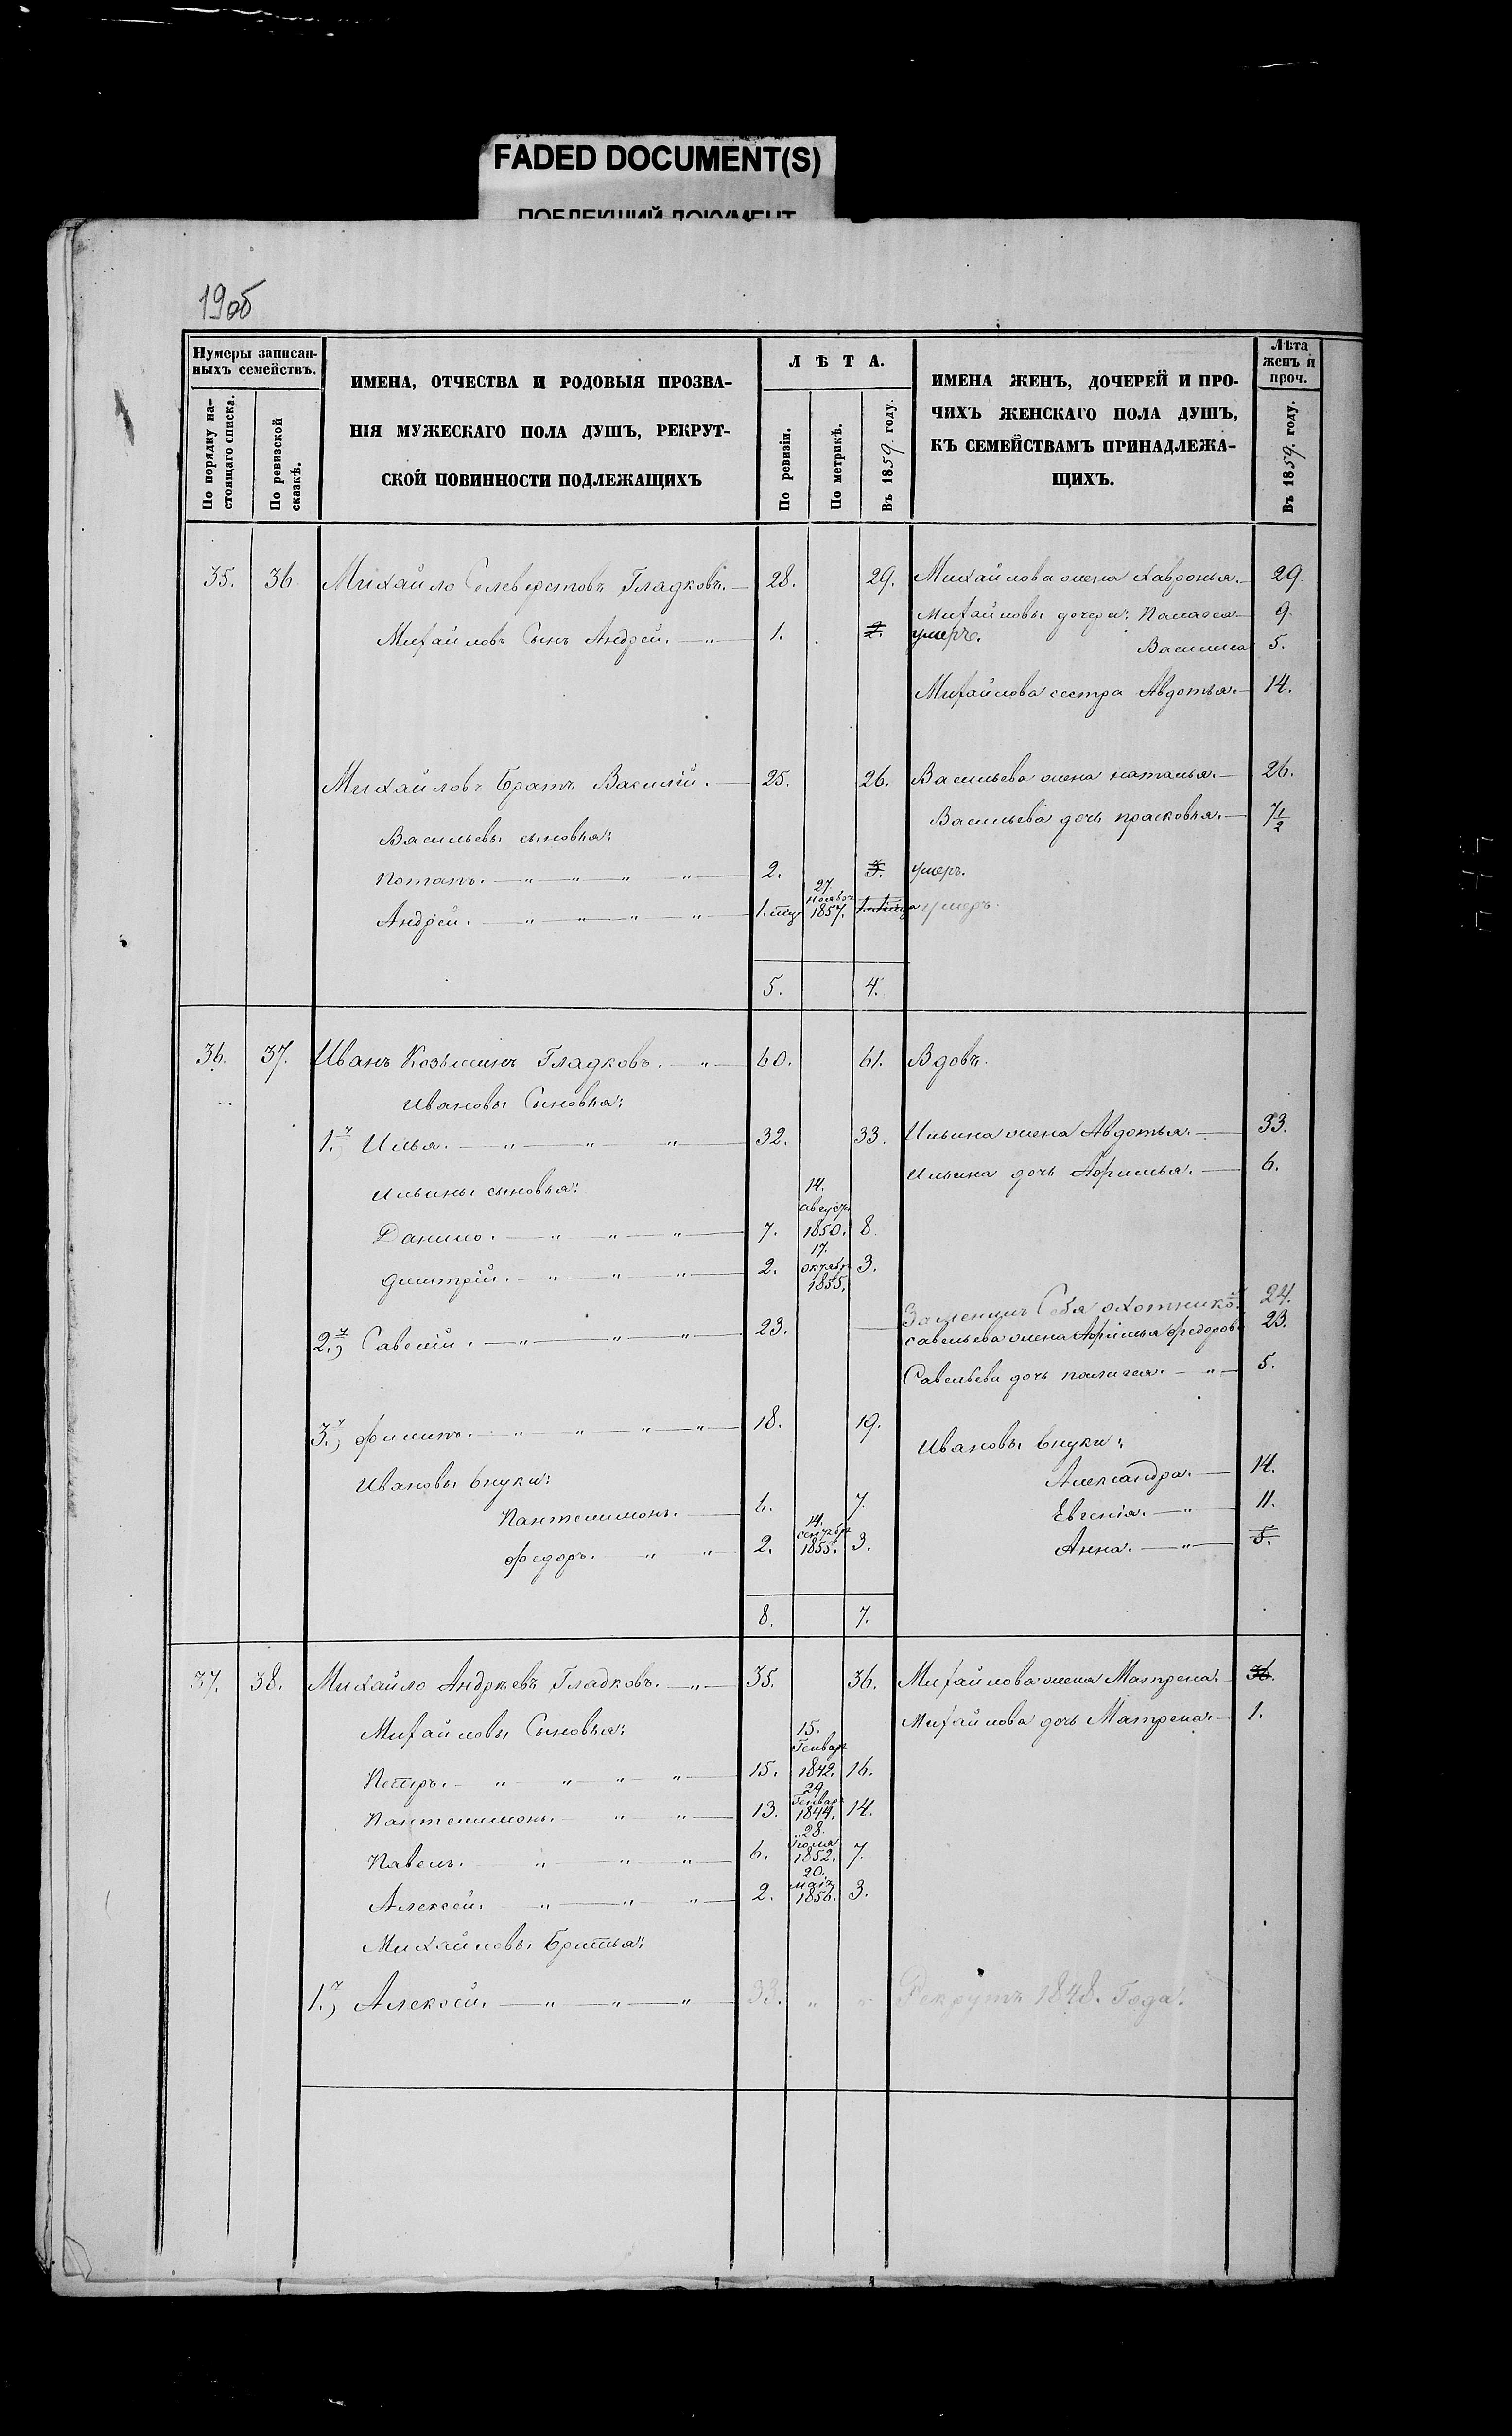 FADED DOCUMENT(S)
ПОБЛЕКШИЙ ДОКУМЕНТ
Нумеры записан-
ныхъ семействъ.
По порядку на-
стоящаго списка.
По ревизской
сказкѣ.
ИМЕНА, ОТЧЕСТВА И РОДОВЫЯ ПРОЗВА-
НІЯ МУЖЕСКАГО ПОЛА ДУШЪ, РЕКРУТ-
СКОЙ ПОВИННОСТИ ПОДЛЕЖАЩИХЪ
ЛѢТА.
По ревизіи.
По метрикѣ.
Въ 1859. году.
ИМЕНА ЖЕНЪ, ДОЧЕРЕЙ И ПРО-
ЧИХЪ ЖЕНСКАГО ПОЛА ДУШЪ,
КЪ СЕМЕЙСТВАМЪ ПРИНАДЛЕЖА-
ЩИХЪ.
Лѣта
женъ и
проч.
Въ 1859. году.
35. 36 Михайло Селеверстовъ Гладковъ. 28. 29. Михайлова жена Хавронья. 29.
Михайловы дочери: Палагея 9.
Михайловъ Сынъ Андрей. 1. 2. умеръ.
Василиса 5.
Михайлова сестра Авдотья. 14.
Михайловъ Братъ Василій. 25. 26. Васильева жена наталья. 26.
Васильева дочь прасковья. 7 1/2
Васильевы сыновья:
Потапъ. 2. 3. умеръ.
Андрей. 1. 27 Ноября 1857. умеръ.
5. 4.
36. 37. Иванъ Козьминъ Гладковъ. 60. 61. Вдовъ.
Ивановы Сыновья:
1.й Илья. 32. 33. Ильина жена Авдотья. 33.
Ильина дочь Афимья. 6.
Ильины сыновья:
Данило. 7. 14. августа 1850. 8.
дмитрій. 2. 17. октября 1855. 3.
Заменилъ Себя охотникомъ 24.
2.й Савелій. 23. савельева жена Афимья федорова 23.
Савельева дочь палагея. 5.
3.й филипъ. 18. 19.
Ивановы внуки:
Ивановы внуки:
Александра. 14.
Пантелимонъ. 6. 7. Евгенія. 11.
федоръ. 2. 14. сентября 1855. 3. Анна. 5.
8. 7.
37. 38. Михайло Андреевъ Гладковъ. 35. 36. Михайлова жена Матрена. 36.
Михайлова дочь Матрена. 1.
Михайловы Сыновья:
Петръ. 15. 15. Генваря 1842. 16.
Пантелимонъ. 13. 29. Генваря 1844. 14.
Павелъ. 6. 28. 1852. 7.
Алексей. 2. 20. 1856. 3.
Михайловы Братья:
1.й Алексей. 33. Рекрутъ 1848. Года.